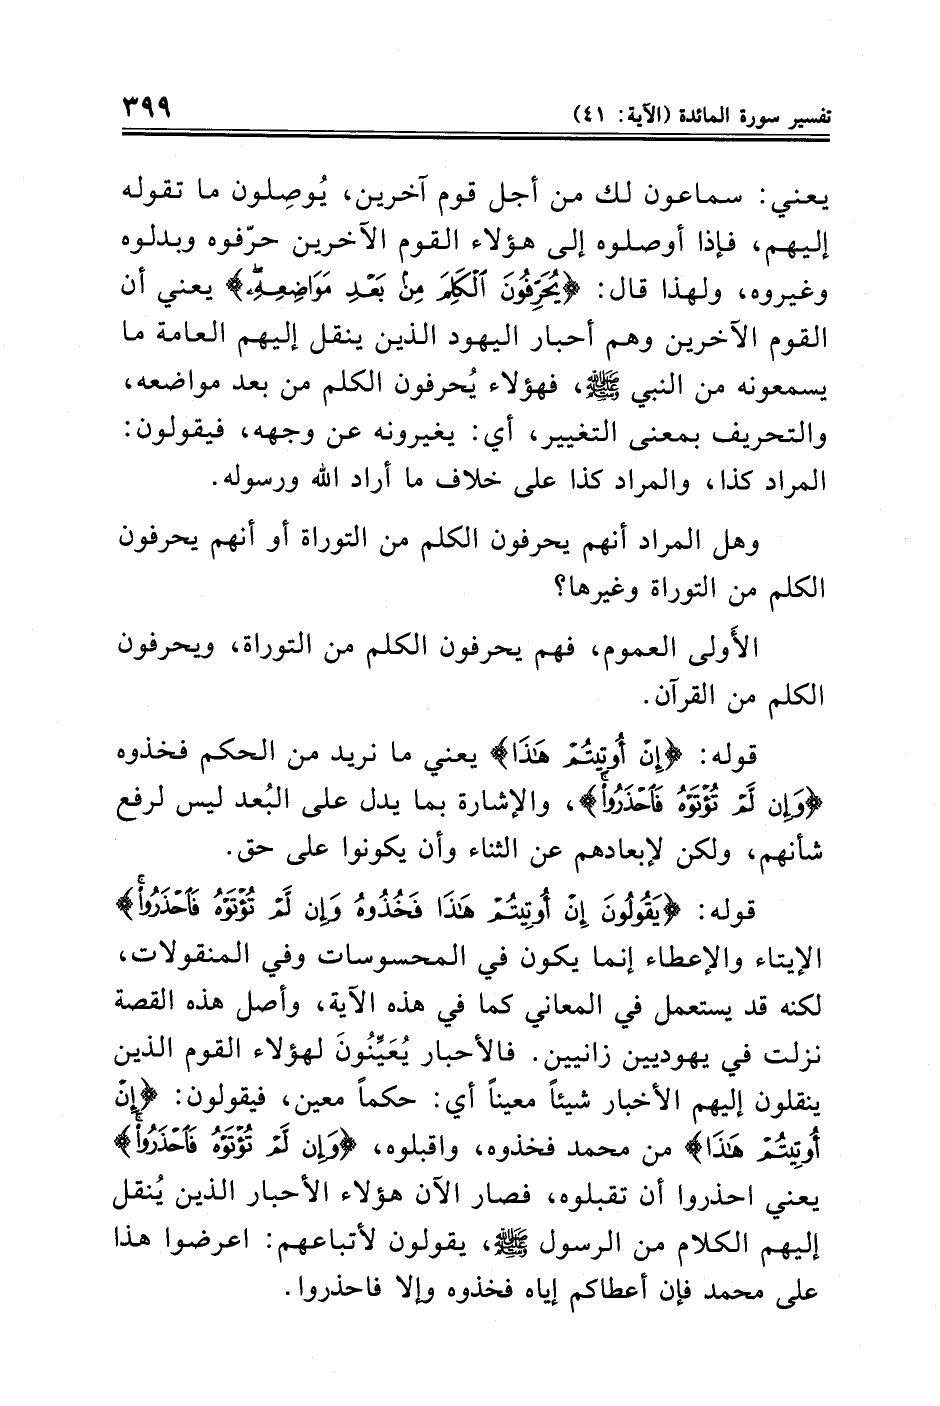 تفسير سورة المائدة (الآية: ٤١) ٣٩٩
يعني: سماعون لك من أجل قوم آخرين، يُوصِلون ما تقوله
إليهم، فإذا أوصلوه إلى هؤلاء القوم الآخرين حرّفوه وبدلوه
وغيروه، ولهذا قال: ﴿يُحَرِّفُونَ ٱلْكَلِمَ مِنۢ بَعْدِ مَوَاضِعِهِۦۖ﴾ يعني أن
القوم الآخرين وهم أحبار اليهود الذين ينقل إليهم العامة ما
يسمعونه من النبي ﷺ، فهؤلاء يُحرفون الكلم من بعد مواضعه،
والتحريف بمعنى التغيير، أي: يغيرونه عن وجهه، فيقولون:
المراد كذا، والمراد كذا على خلاف ما أراد الله ورسوله.
وهل المراد أنهم يحرفون الكلم من التوراة أو أنهم يحرفون
الكلم من التوراة وغيرها؟
الأَولى العموم، فهم يحرفون الكلم من التوراة، ويحرفون
الكلم من القرآن.
قوله: ﴿إِنْ أُوتِيتُمْ هَٰذَا﴾ يعني ما نريد من الحكم فخذوه
﴿وَإِن لَّمْ تُؤْتَوْهُ فَٱحْذَرُوا۟ۚ﴾، والإشارة بما يدل على البُعد ليس لرفع
شأنهم، ولكن لإبعادهم عن الثناء وأن يكونوا على حق.
قوله: ﴿يَقُولُونَ إِنْ أُوتِيتُمْ هَٰذَا فَخُذُوهُ وَإِن لَّمْ تُؤْتَوْهُ فَٱحْذَرُوا۟ۚ﴾
الإيتاء والإعطاء إنما يكون في المحسوسات وفي المنقولات،
لكنه قد يستعمل في المعاني كما في هذه الآية، وأصل هذه القصة
نزلت في يهوديين زانيين. فالأحبار يُعَيِّنُونَ لهؤلاء القوم الذين
ينقلون إليهم الأخبار شيئاً معيناً أي: حكماً معين، فيقولون: ﴿إِنْ
أُوتِيتُمْ هَٰذَا﴾ من محمد فخذوه، واقبلوه، ﴿وَإِن لَّمْ تُؤْتَوْهُ فَٱحْذَرُوا۟ۚ﴾
يعني احذروا أن تقبلوه، فصار الآن هؤلاء الأحبار الذين يُنقل
إليهم الكلام من الرسول ﷺ، يقولون لأتباعهم: اعرضوا هذا
على محمد فإن أعطاكم إياه فخذوه وإلا فاحذروا.